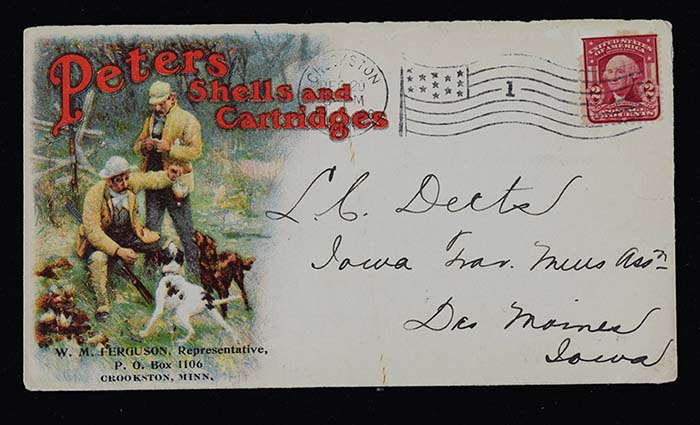 Peters
Shells and
Cartridges
CROOKSTON
20
M
1
UNITED STATES
OF AMERICA
2 2
L. C. Deets
Iowa Trav. Mens Assn
Des Moines
Iowa
W. M. FERGUSON, Representative,
P. O. Box 1106
CROOKSTON, MINN.